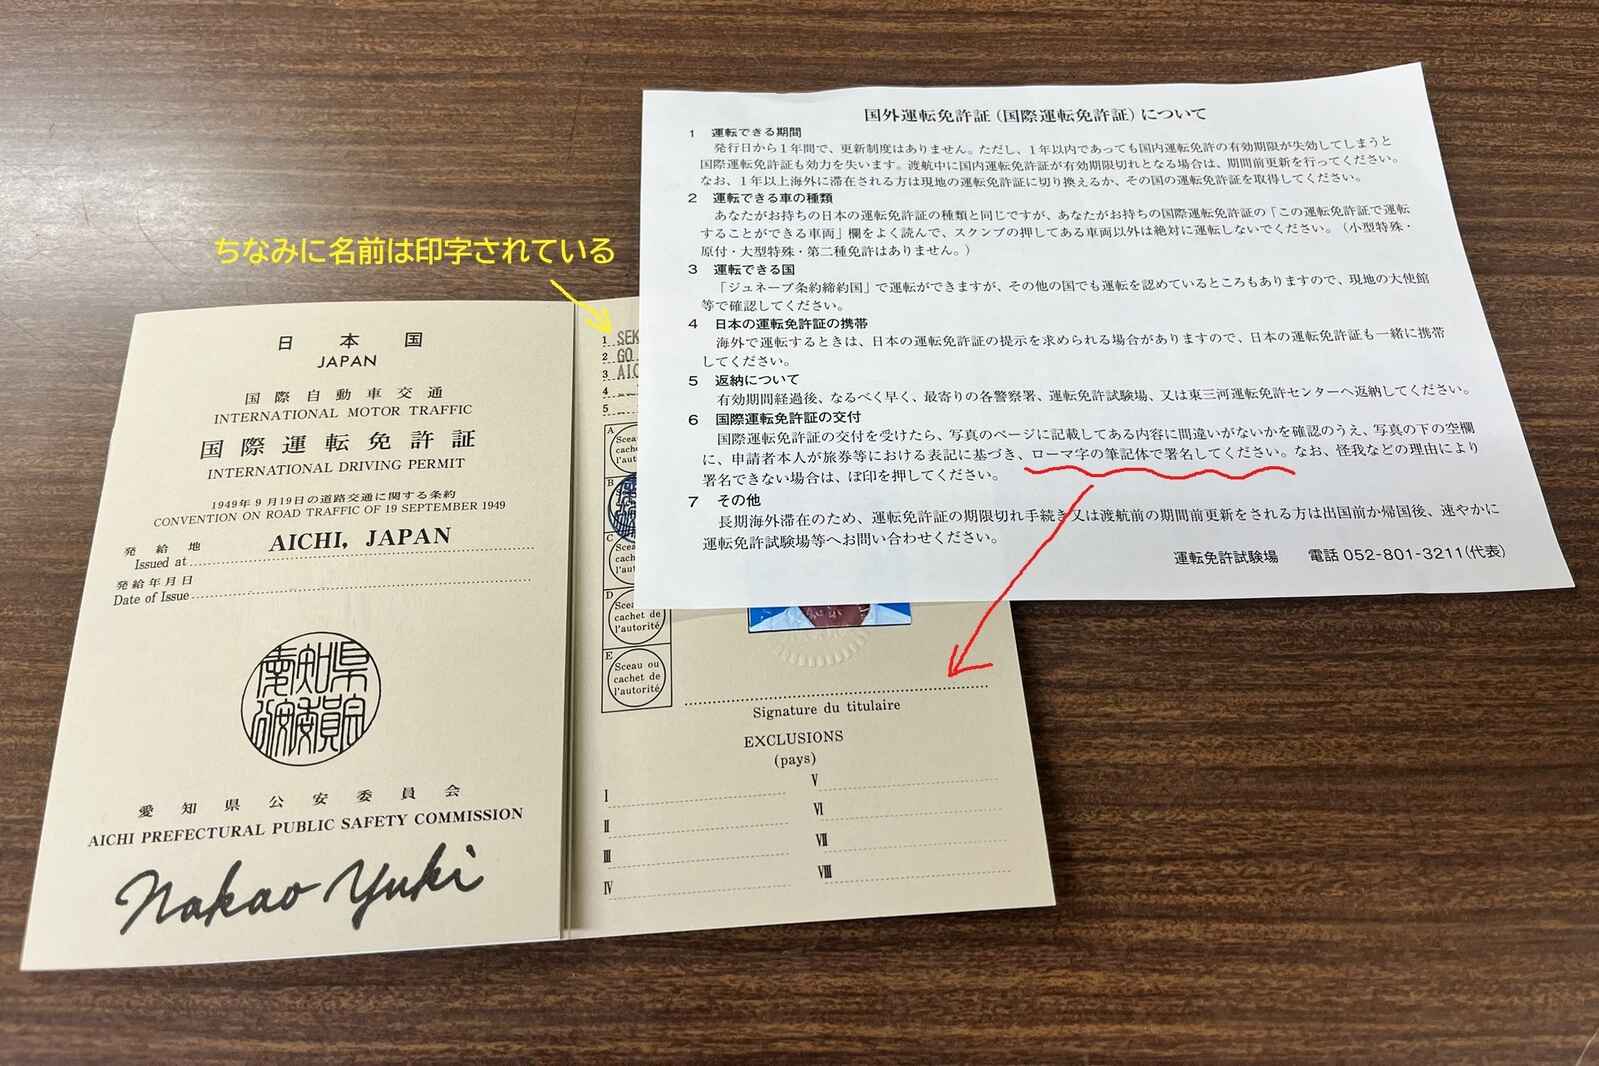 ちなみに名前は印字されている
日本国
JAPAN
国際自動車交通
INTERNATIONAL MOTOR TRAFFIC
国際運転免許証
INTERNATIONAL DRIVING PERMIT
1949年9月19日の道路交通に関する条約
CONVENTION ON ROAD TRAFFIC OF 19 SEPTEMBER 1949
発給地
Issued at
AICHI, JAPAN
発給年月日
Date of Issue
愛知県公安委員会
愛知県公安委員会
AICHI PREFECTURAL PUBLIC SAFETY COMMISSION
Nakao Yuki
1 SEK
2 GO
3 AIC
4
5
A
Sceau
cachet
l'auto
B
C
Sceau
cachet
l'auto
D
Sceau
cachet de
l'autorité
E
Sceau ou
cachet de
l'autorité
Signature du titulaire
EXCLUSIONS
(pays)
I
II
III
IV
V
VI
VII
VIII
国外運転免許証(国際運転免許証)について
1 運転できる期間
発行日から1年間で、更新制度はありません。ただし、1年以内であっても国内運転免許の有効期限が失効してしまうと
国際運転免許証も効力を失います。渡航中に国内運転免許証が有効期限切れとなる場合は、期間前更新を行ってください。
なお、1年以上海外に滞在される方は現地の運転免許証に切り換えるか、その国の運転免許証を取得してください。
2 運転できる車の種類
あなたがお持ちの日本の運転免許証の種類と同じですが、あなたがお持ちの国際運転免許証の「この運転免許証で運転
することができる車両」欄をよく読んで、スタンプの押してある車両以外は絶対に運転しないでください。(小型特殊・
原付・大型特殊・第二種免許はありません。)
3 運転できる国
「ジュネーブ条約締約国」で運転ができますが、その他の国でも運転を認めているところもありますので、現地の大使館
等で確認してください。
4 日本の運転免許証の携帯
海外で運転するときは、日本の運転免許証の提示を求められる場合がありますので、日本の運転免許証も一緒に携帯
してください。
5 返納について
有効期間経過後、なるべく早く、最寄りの各警察署、運転免許試験場、又は東三河運転免許センターへ返納してください。
6 国際運転免許証の交付
国際運転免許証の交付を受けたら、写真のページに記載してある内容に間違いがないかを確認のうえ、写真の下の空欄
に、申請者本人が旅券等における表記に基づき、ローマ字の筆記体で署名してください。なお、怪我などの理由により
署名できない場合は、ぼ印を押してください。
7 その他
長期海外滞在のため、運転免許証の期限切れ手続き又は渡航前の期間前更新をされる方は出国前か帰国後、速やかに
運転免許試験場等へお問い合わせください。
運転免許試験場 電話 052-801-3211(代表)